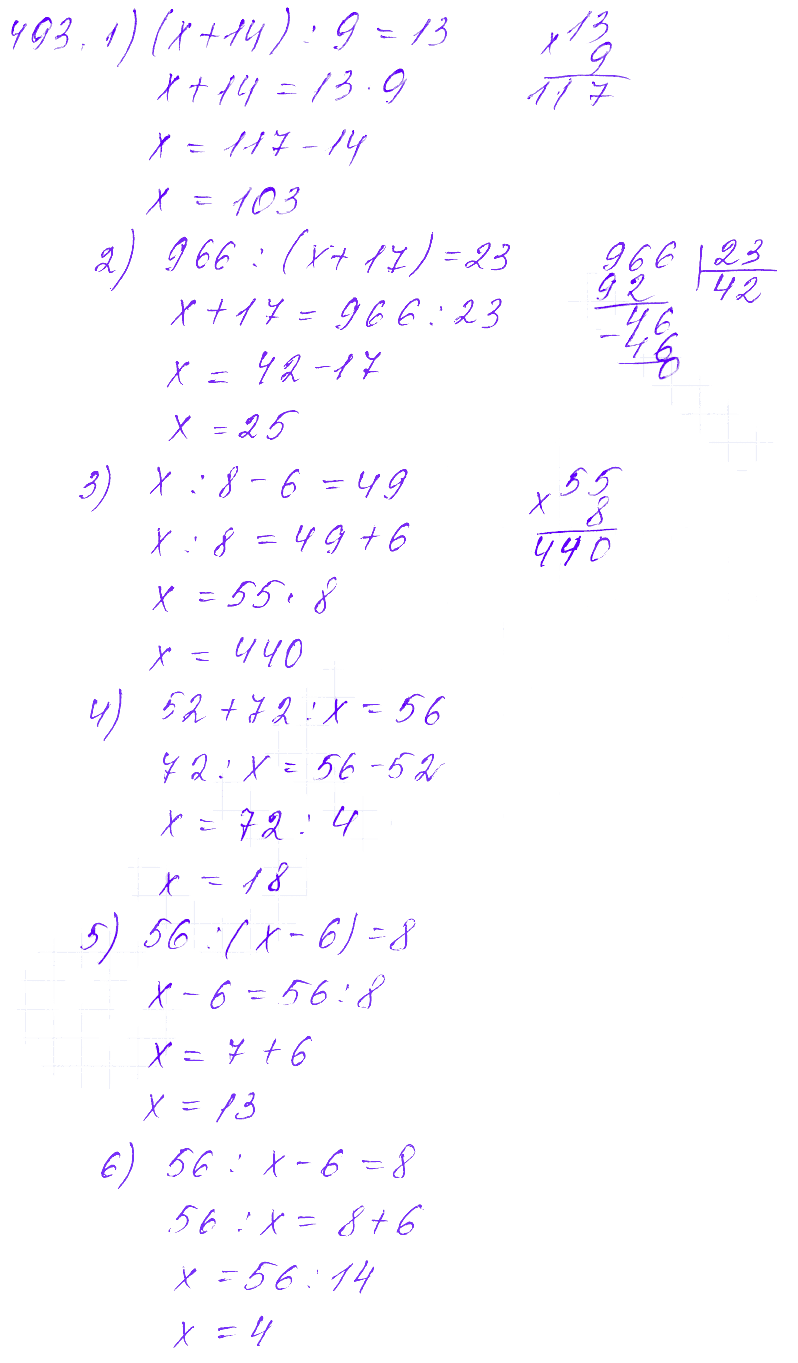 493. 1) (x+14) : 9 = 13
x 13
9
117
x+14 = 13·9
x = 117-14
x = 103
2) 966 : (x+17) = 23
966 | 23
92 42
46
-46
0
x+17 = 966:23
x = 42-17
x = 25
3) x : 8 - 6 = 49
x 55
8
440
x : 8 = 49+6
x = 55·8
x = 440
4) 52+72 : x = 56
72 : x = 56-52
x = 72 : 4
x = 18
5) 56 : (x-6) = 8
x-6 = 56:8
x = 7+6
x = 13
6) 56 : x-6 = 8
56 : x = 8+6
x = 56:14
x = 4